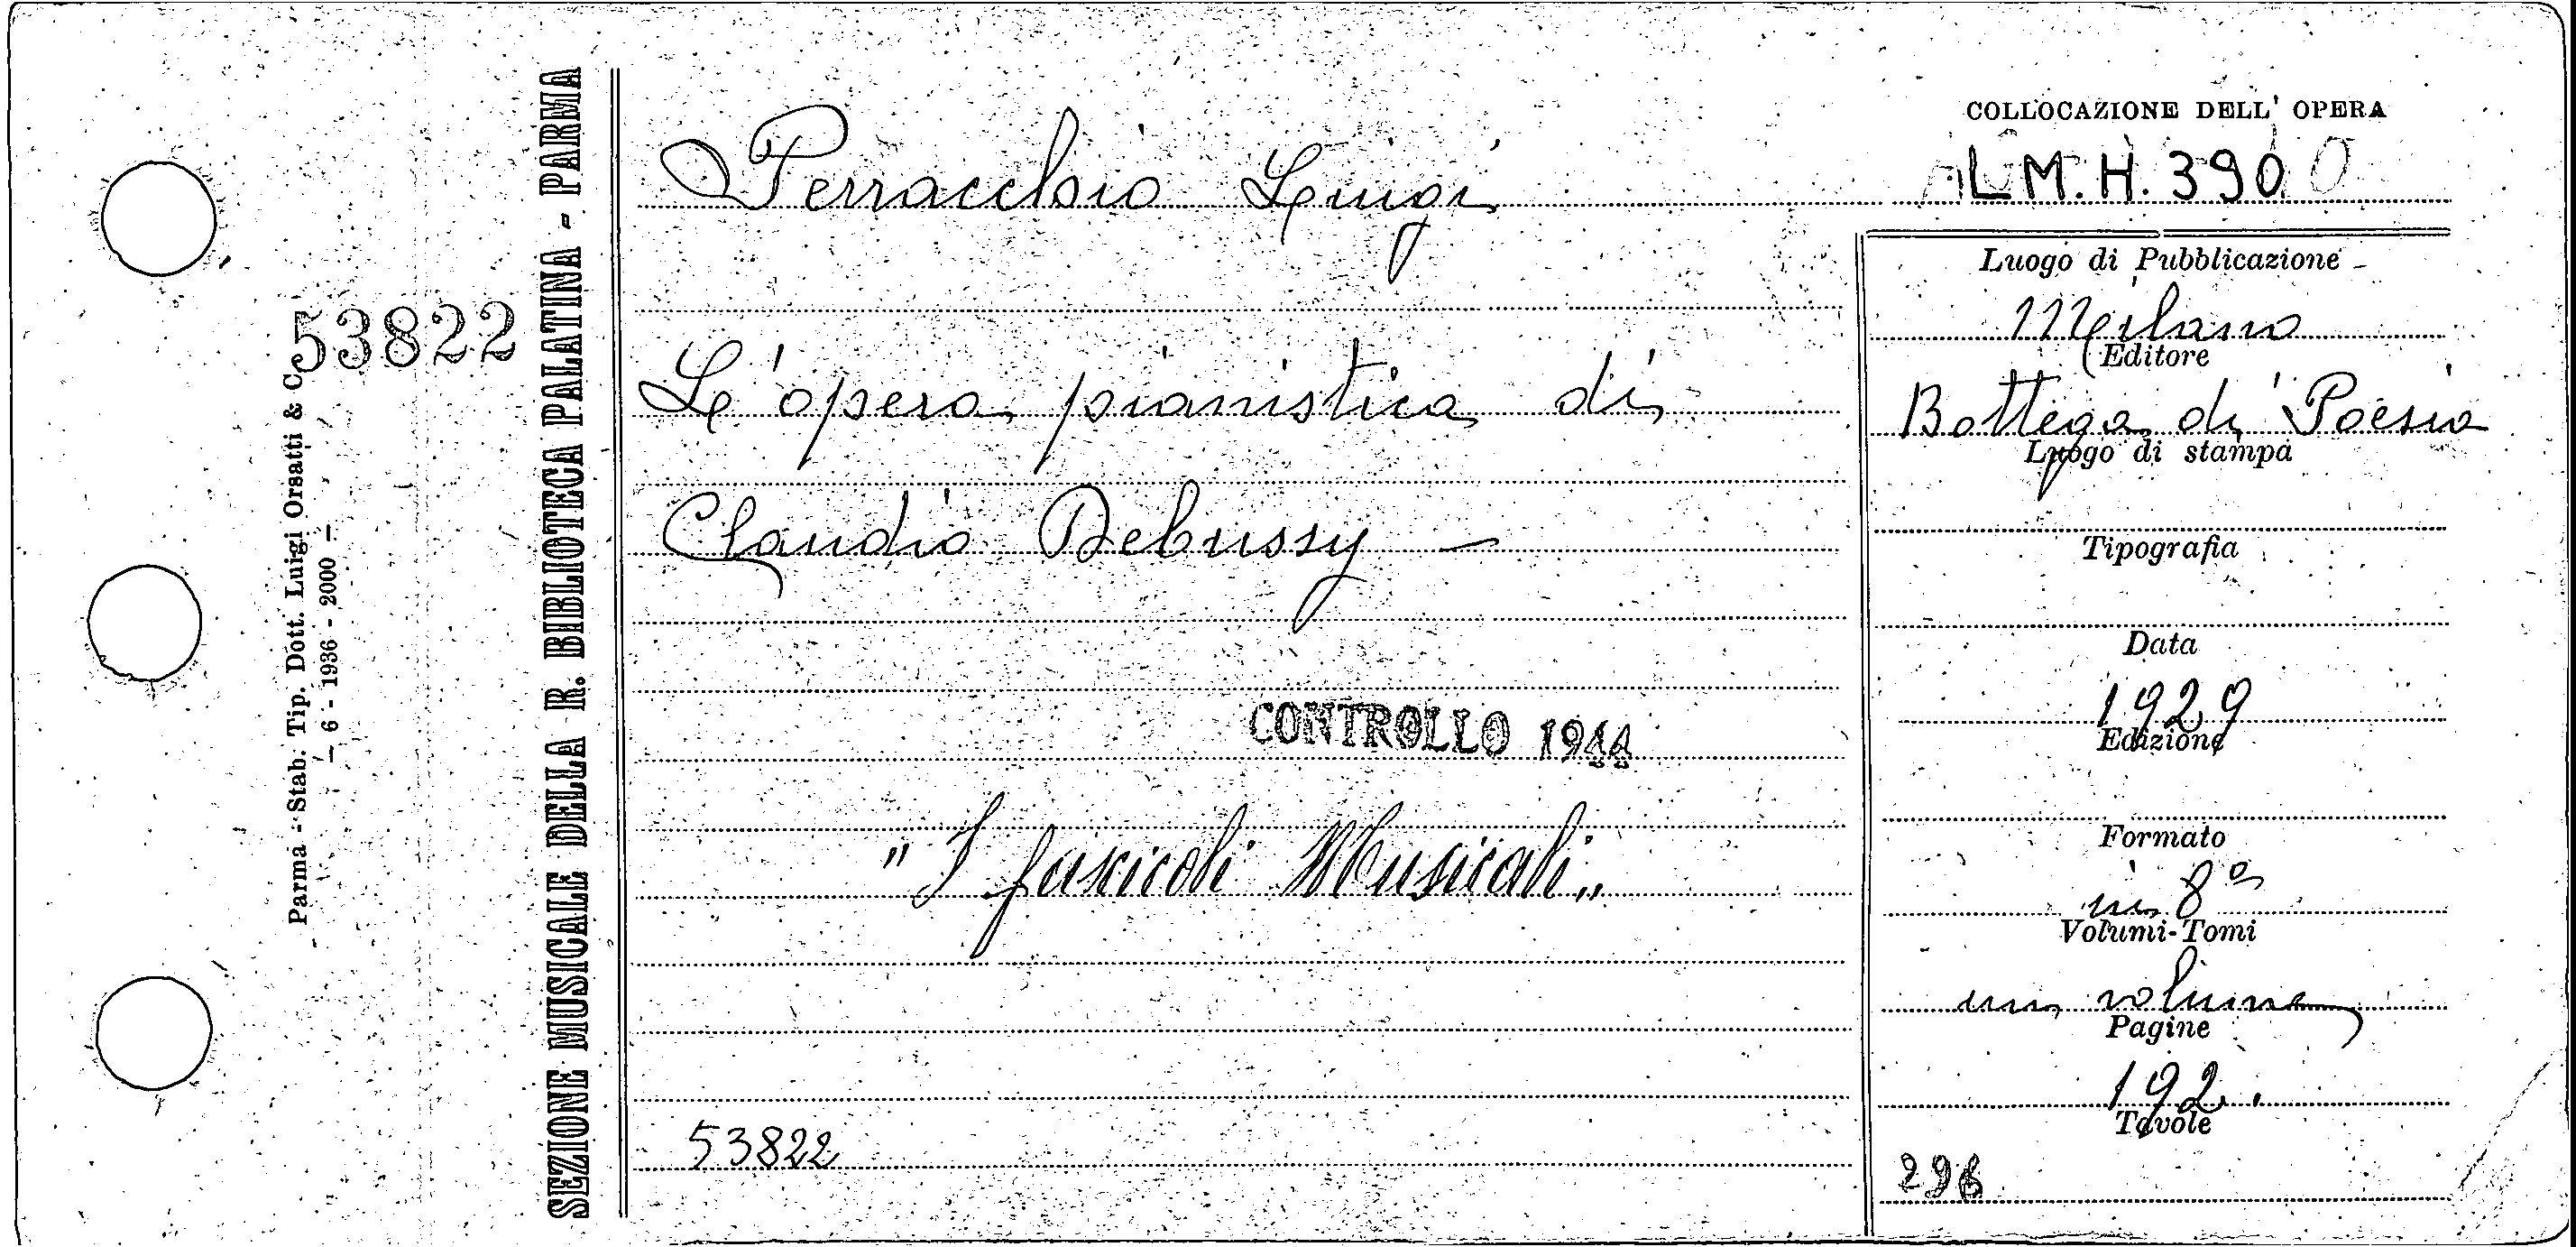 SEZIONE MUSICALE DELLA R. BIBLIOTECA PALATINA - PARMA
Parma - Stab. Tip. Dott. Luigi Orsatti & C.
— 6 - 1936 - 2000 —
53822
Perracchio Luigi
L'opera pianistica di
Claudio Debussy —
CONTROLLO 1944
" I fascicoli Musicali „
53822
COLLOCAZIONE DELL' OPERA
L M. H. 390
Luogo di Pubblicazione
Milano
Editore
Bottega di Poesia
Luogo di stampa
Tipografia
Data
1929
Edizione
Formato
in 8º
Volumi-Tomi
un volume
Pagine
192.
Tavole
296